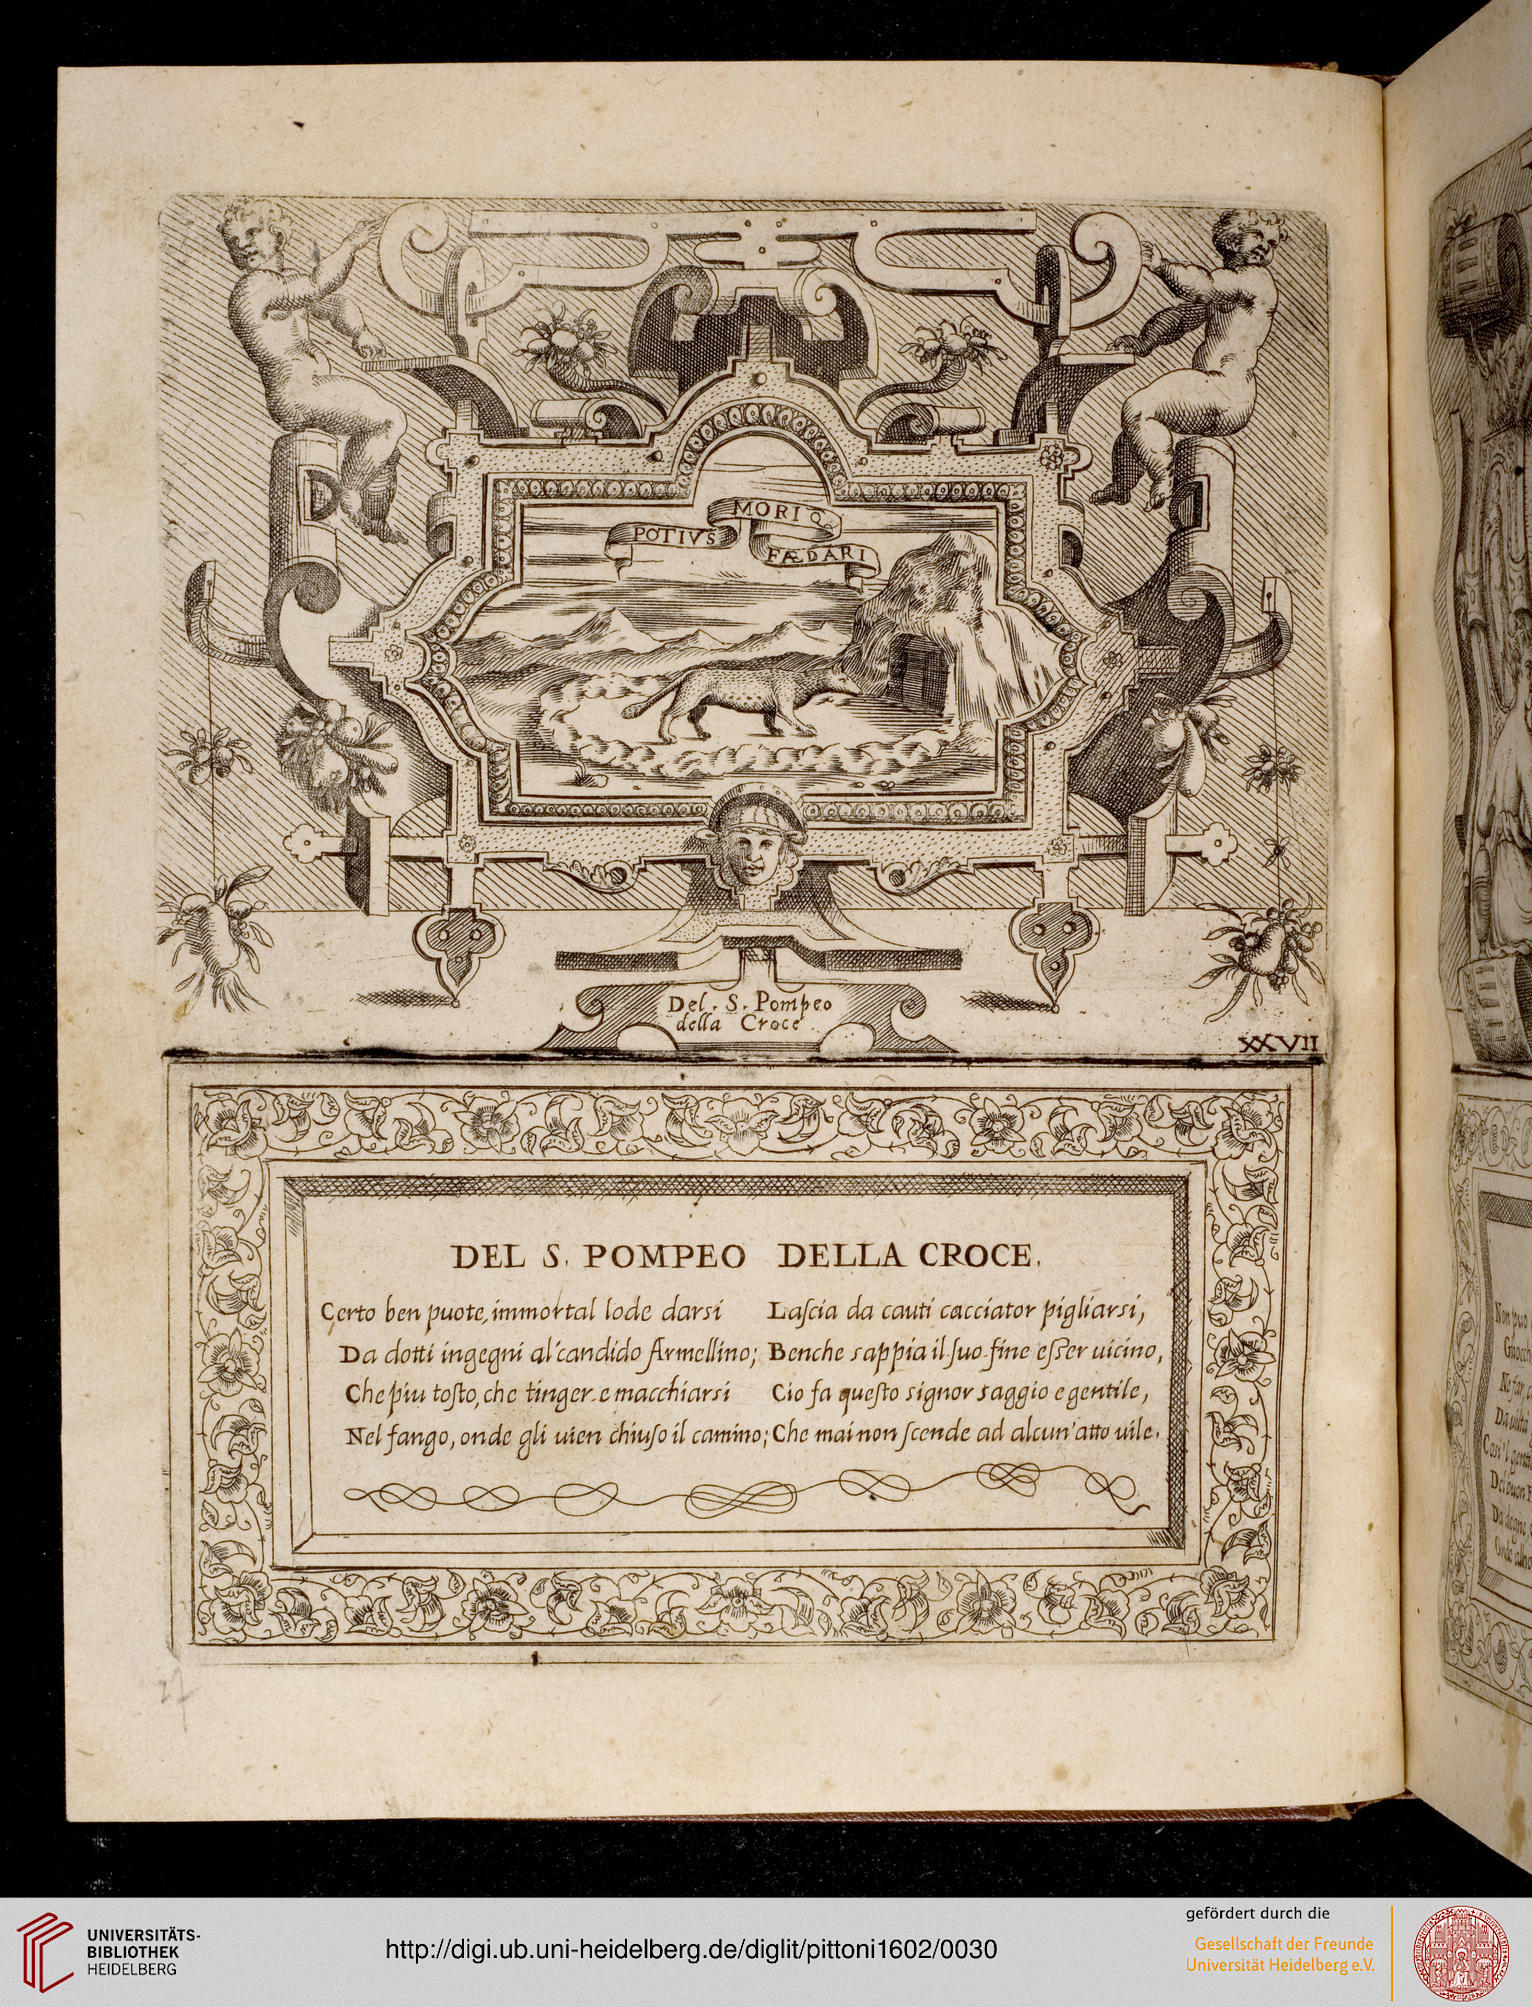 POTIVS
MORI Q̃
FÆDARI
Del. S. Pompeo
della Croce
XXVII
DEL S. POMPEO DELLA CROCE.
Certo ben puote, immortal lode darsi
Da dotti ingegni al'candido Armellino;
Che piu toſto, che tinger e macchiarsi
Nel fango, onde gli uien chiuſo il camino;
Laſcia da cauti cacciator pigliarsi,
Benche sappia il ſuo fine eſser uicino,
Cio fa queſto signor saggio e gentile,
Che mai non ſcende ad alcun'atto uile.
27
Non puo
Da
UNIVERSITÄTS-
BIBLIOTHEK
HEIDELBERG
http://digi.ub.uni-heidelberg.de/diglit/pittoni1602/0030
gefördert durch die
Gesellschaft der Freunde
Universität Heidelberg e.V.